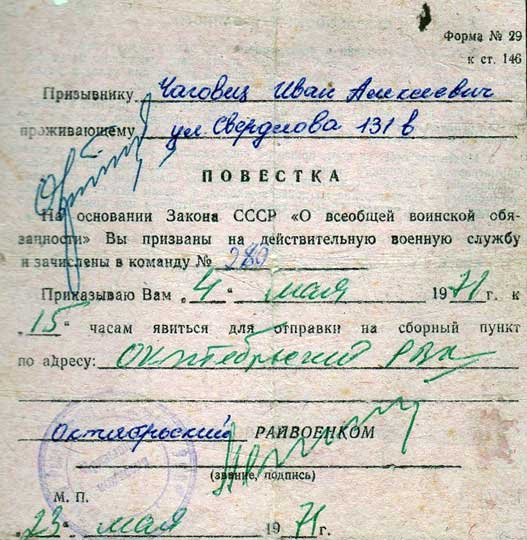 Форма № 29
к ст. 146
Призывнику Чаговец Иван Алексеевич
проживающему ул. Свердлова 131 в
ПОВЕСТКА
На основании Закона СССР «О всеобщей воинской обя-
занности» Вы призваны на действительную военную службу
и зачислены в команду № 280
Приказываю Вам „4“ мая 1971 г. к
„15“ часам явиться для отправки на сборный пункт
по адресу: Октябрьский РВК
Октябрьский РАЙВОЕНКОМ
(звание, подпись)
М. П.
„23“ мая 1971 г.